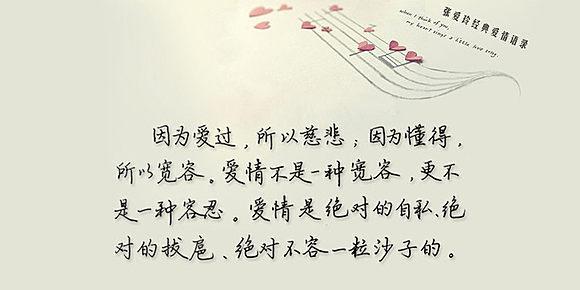 张爱玲经典爱情语录
when I think of you,
my heart sings a little love song.
因为爱过，所以慈悲；因为懂得，
所以宽容。爱情不是一种宽容，更不
是一种容忍。爱情是绝对的自私、绝
对的拔扈、绝对不容一粒沙子的。